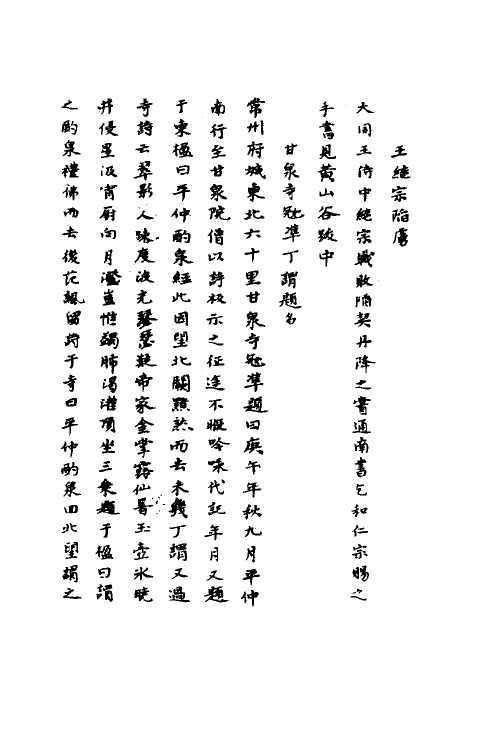 王繼宗陷虜
大同王侍中繼宗戰敗陷契丹降之嘗通南書乞和仁宗賜之
手書見黃山谷跋中
甘泉寺冦準丁謂題名
常州府城東北六十里甘泉寺冦準題曰庚午年秋九月平仲
南行至甘泉院僧以詩板示之征途不暇吟味代記年月又題
于東楹曰平仲酌泉經此因望北闕黯然而去未幾丁謂又過
寺詩云翠影入疎度波光瑟瑟凝帝家金掌露仙署玉壺氷曉
井侵星汲宵廚向月澄豈惟蠲肺渴灌頂坐三乘題于楹曰謂
之酌泉禮佛而去後范諷留詩于寺曰平仲酌泉回北望謂之